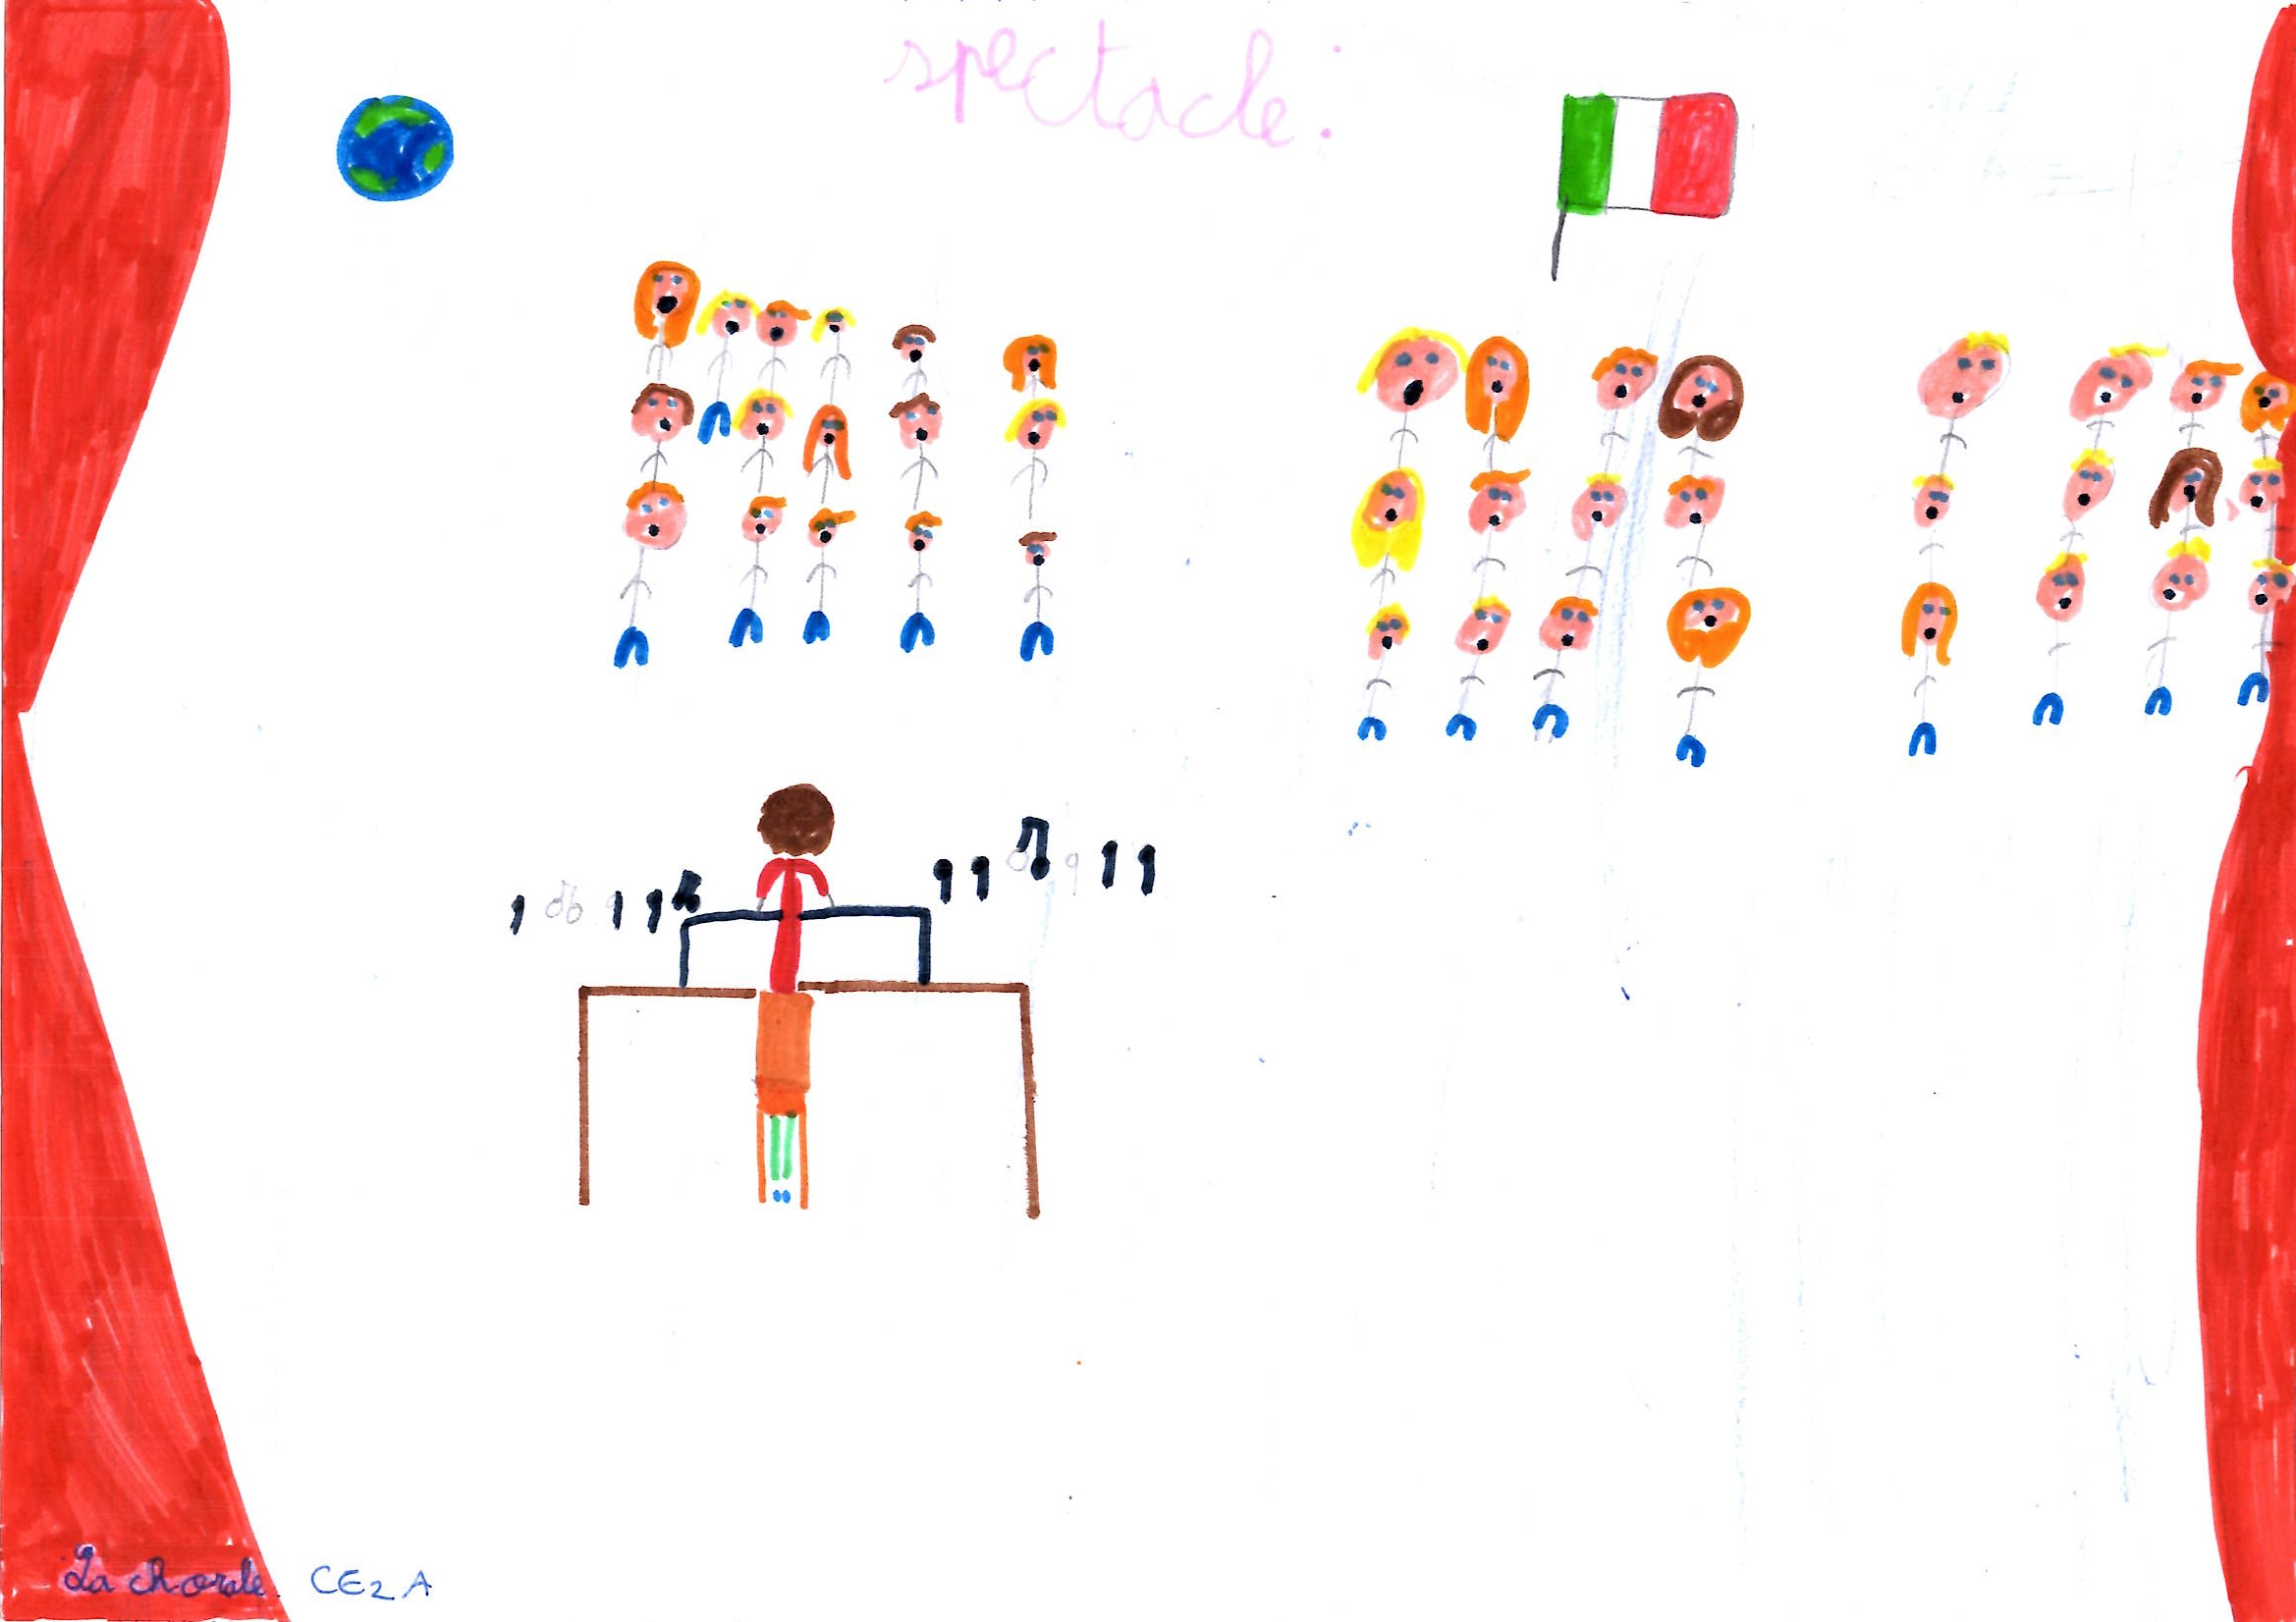 spectacle :
La chorale CE2 A